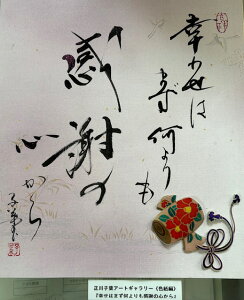 幸せは
まず何よりも
感謝の
心から
正川子葉アートギャラリー（色紙編）
『幸せはまず何よりも感謝の心から』